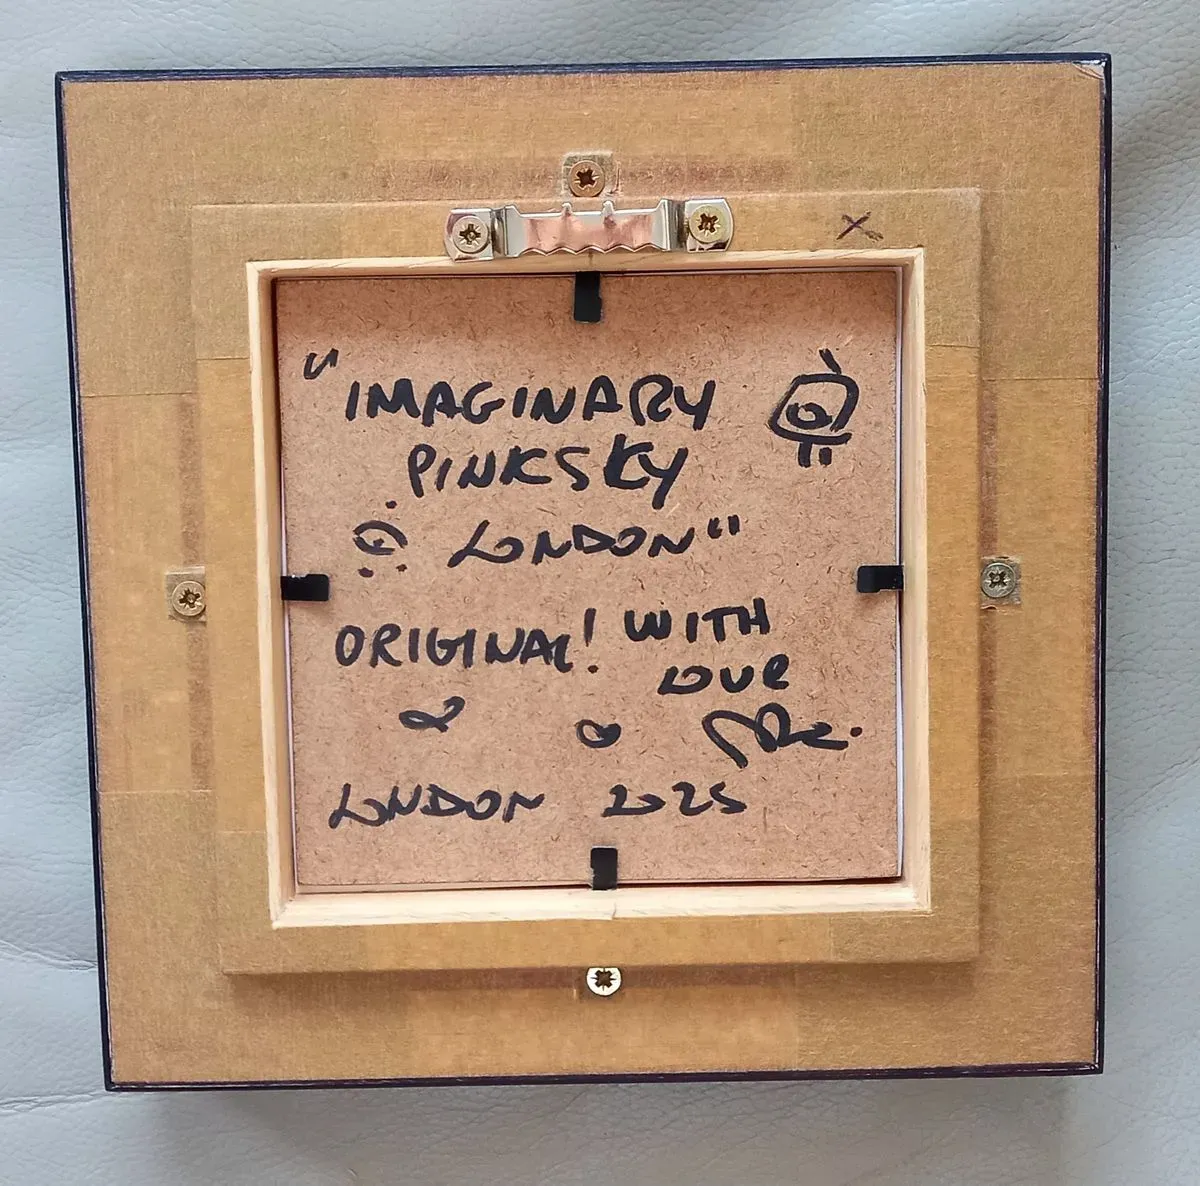 "IMAGINARY
PINKSKY
LONDON"
ORIGINAL! WITH
LOVE
LONDON 2025